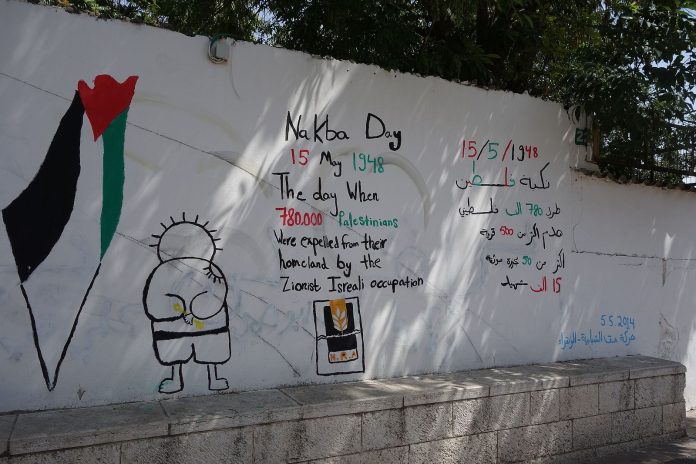 Nakba Day
15 May 1948
The day When
780.000 Palestinians
Were expelled from their
homeland by the
Zionist Isreali occupation
H.R.A
15/5/1948
نكبة فلسطين
طرد 780 الف فلسطيني
هدم اكثر من 500 قرية
اكثر من 50 مجزرة
15 الف شهيد
5.5.2014
حركة الشبابية -